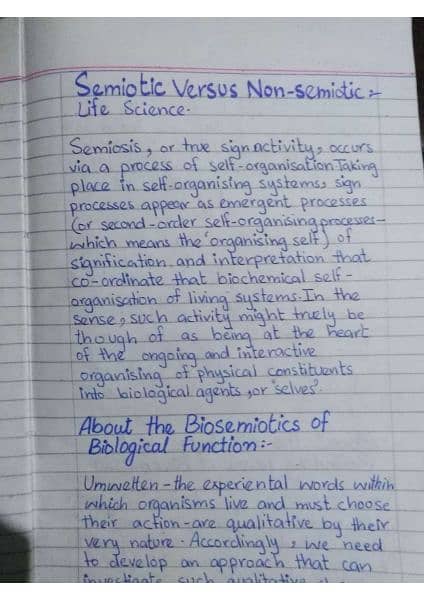 Semiotic Versus Non-semiotic:-
Life Science.
Semiosis, or true sign activity, occurs
via a process of self-organisation. Taking
place in self-organising systems, sign
processes appear as emergent processes
(or second-order self-organising processes-
which means the 'organising self') of
signification and interpretation that
co-ordinate that biochemical self-
organisation of living systems. In the
sense, such activity might truely be
though of as being at the heart
of the ongoing and interactive
organising of physical constituents
into biological agents, or 'selves'.
About the Biosemiotics of
Biological Function:-
Umwelten - the experiental words within
which organisms live and must choose
their action - are qualitative by their
very nature. Accordingly, we need
to develop an approach that can
investigate such qualitative